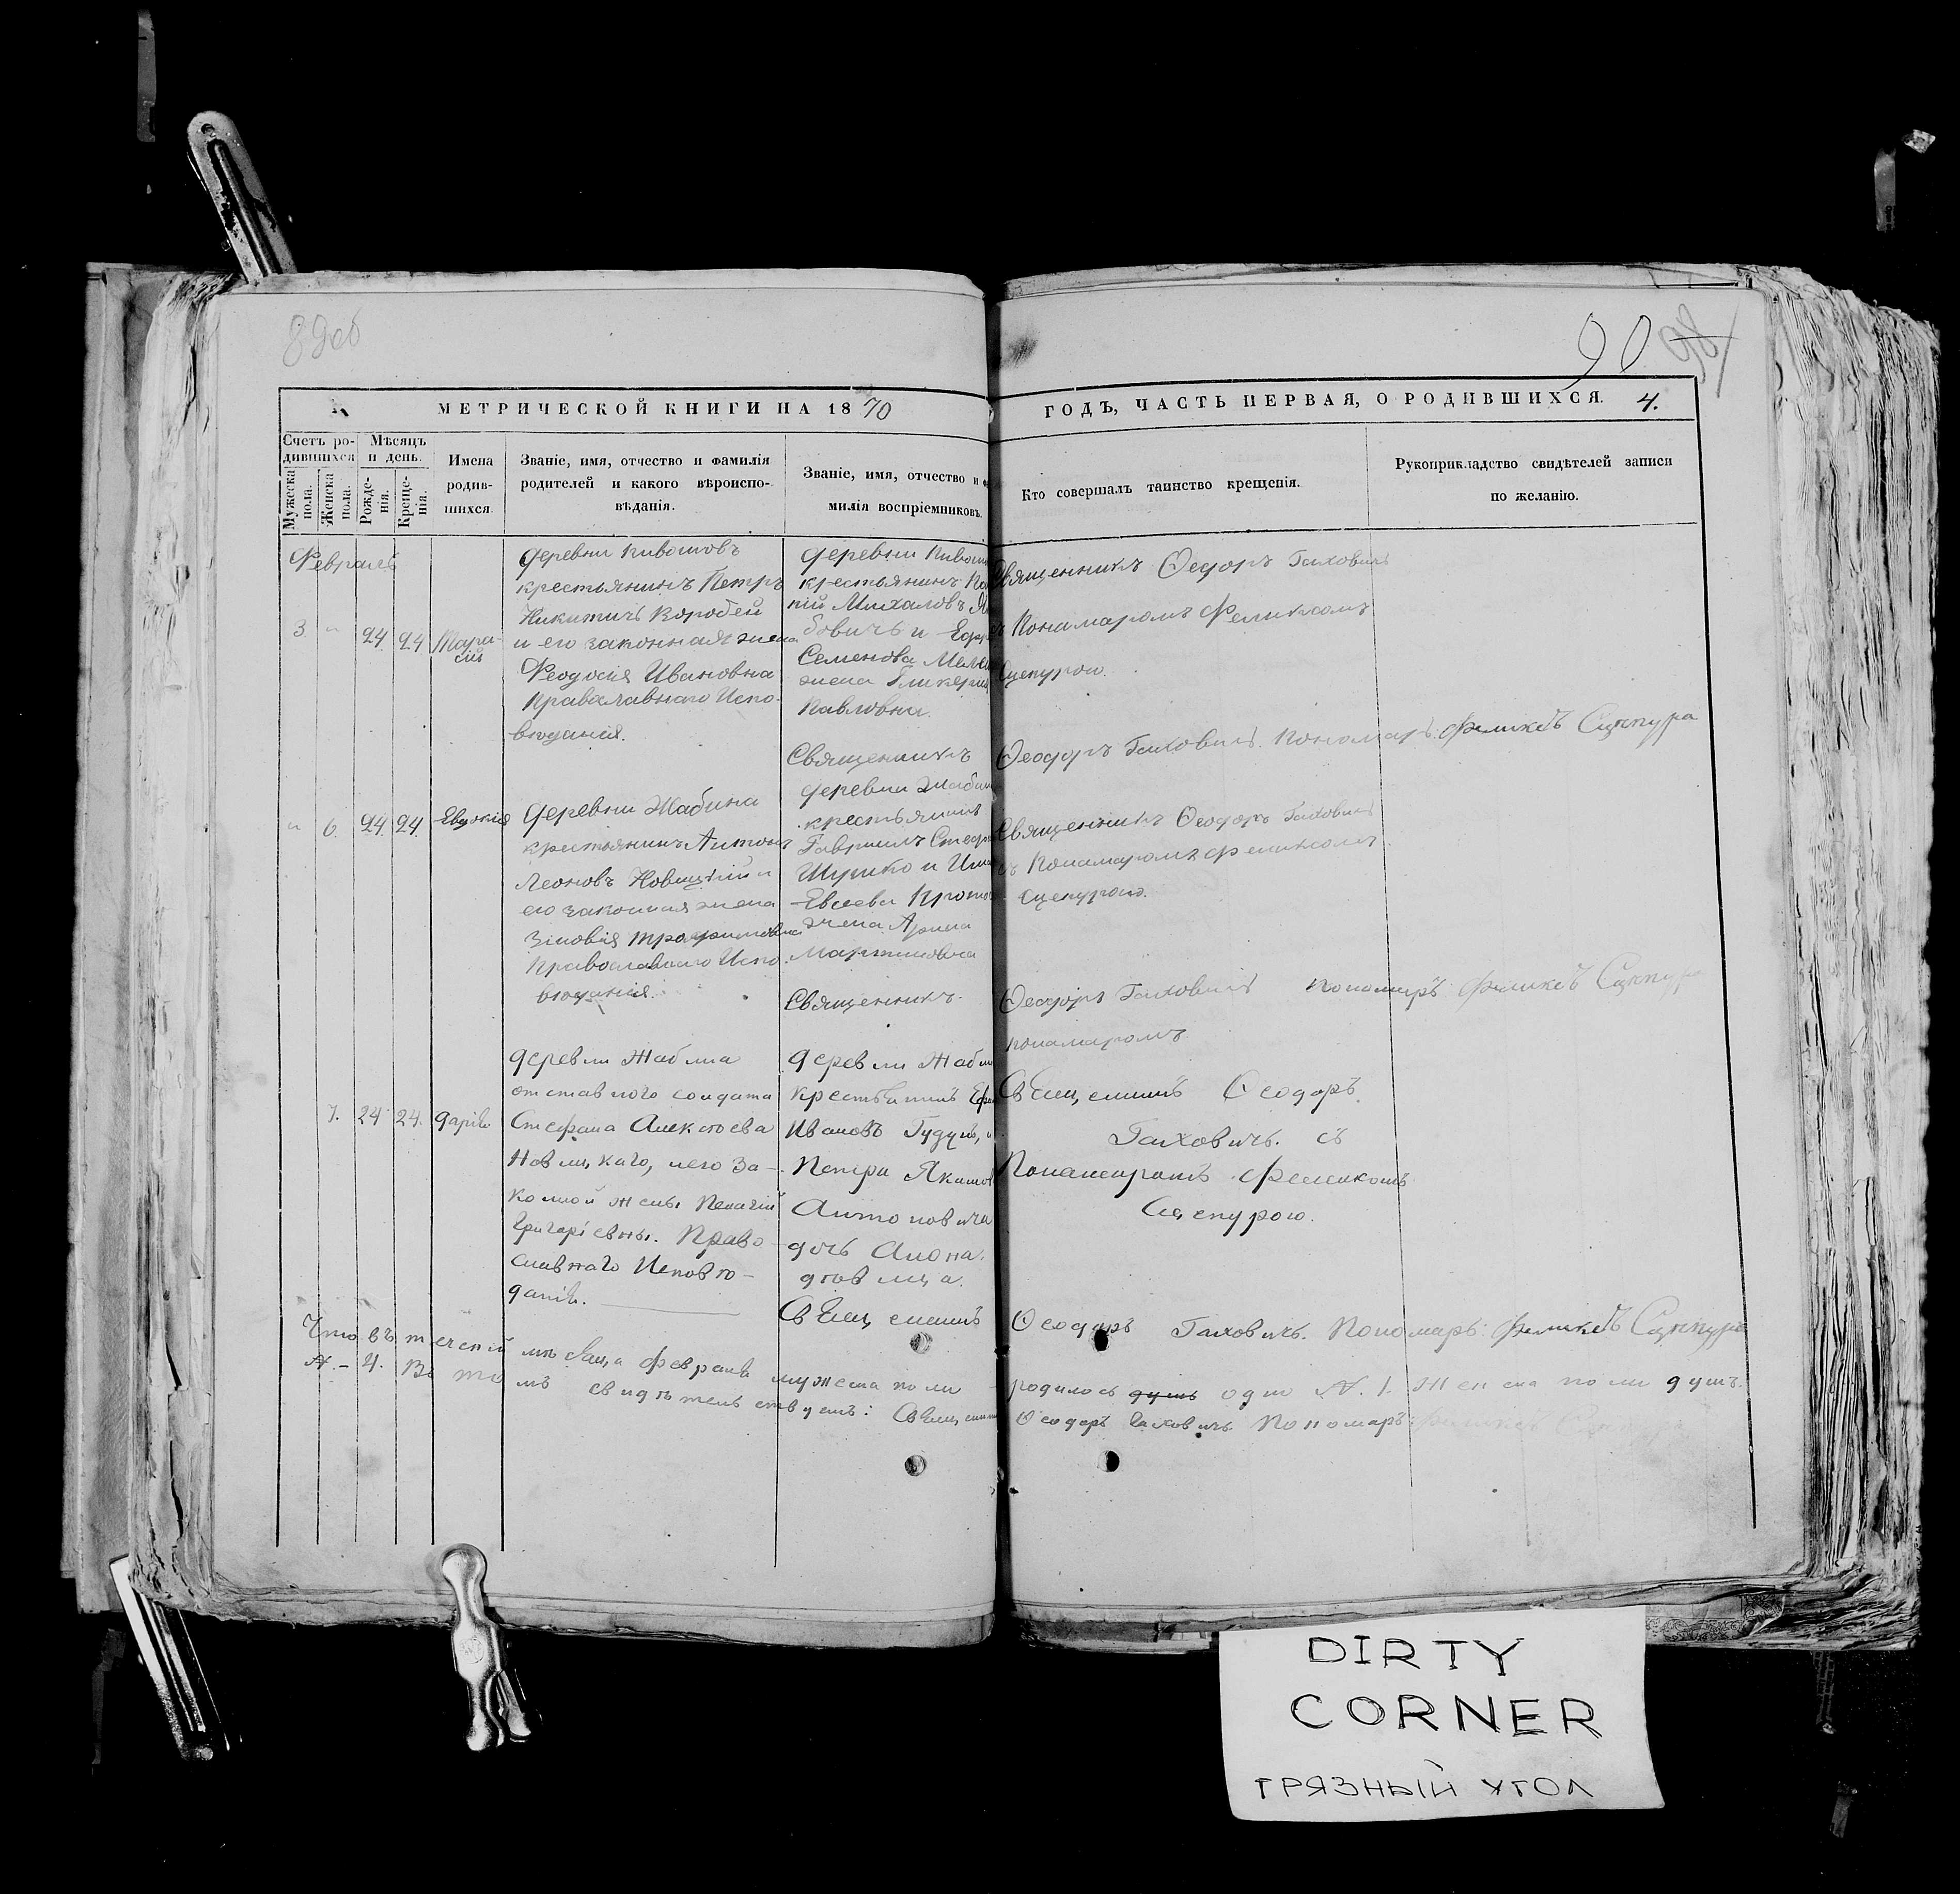 89об
90
98
МЕТРИЧЕСКОЙ КНИГИ НА 1870
ГОДЪ, ЧАСТЬ ПЕРВАЯ, О РОДИВШИХСЯ. 4.
Счетъ ро-
дившихся
Мужеска
пола.
Женска
пола.
Мѣсяцъ
и день.
Рожде-
нія.
Креще-
нія.
Имена
родив-
шихся.
Званіе, имя, отчество и фамилія
родителей и какого вѣроиспо-
вѣданія.
Званіе, имя, отчество и фа
милія воспріемниковъ.
Кто совершалъ таинство крещенія.
Рукоприкладство свидѣтелей записи
по желанію.
Февраль
3 " 24 24 Тара-
сій
деревни
крестьянинъ Петръ
Никитичъ Воробей
и его законная жена
Феодосія Ивановна
Православнаго Испо-
вѣданія.
деревни
крестьянинъ
Михаловъ
бовичъ и
Семенова
жена Гликерія
Павловна.
Священникъ Ѳеодоръ Гаховичъ
съ Понамаромъ Феликсомъ
Сцепурою.
Священникъ Ѳеодоръ Гаховичъ. Пономарь: Феликсъ Сцепура
" 6. 24. 24. Евдокія
деревни Жабина
крестьянинъ Антонъ
Леоновъ Новицкій и
его законная жена
Зиновія Трофимовна
Православнаго Испо-
вѣданія.
деревни Жабин
крестьянинъ
Гавріилъ Стеф
Шушко и
Евсеева
жена Арина
Мартиновна
Священникъ Ѳеодоръ Гаховичъ
съ Понамаромъ Феликсомъ
Сцепурою.
Священникъ Ѳеодоръ Гаховичъ Пономарь: Феликсъ Сцепура
понамаромъ
7. 24 24. Дарія
деревни Жабина
отставного солдата
Стефана Алексѣева
Новицкаго, и его за-
конной жены Пелагіи
Григорiевны. Право-
славнаго Исповѣ-
данія.
деревни Жабин
крестьянинъ
Ивановъ Гудунъ, и
Петра Якимов
Антоновича
дочь Алена
дѣвица.
Священникъ Ѳеодоръ
Гаховичъ. съ
Понамаромъ Феликсомъ
Сцепурою.
Священникъ Ѳеодоръ Гаховичъ. Пономарь: Феликсъ Сцепура
Что въ теченiи мѣсяца февраля мужеска поли родилось душъ одно №. 1. Женска поли душъ
№.–4. Въ томъ свидѣтельствуемъ: Священникъ Ѳеодоръ Гаховичъ Пономарь: Феликсъ
DIRTY
CORNER
ГРЯЗНЫЙ УГОЛ